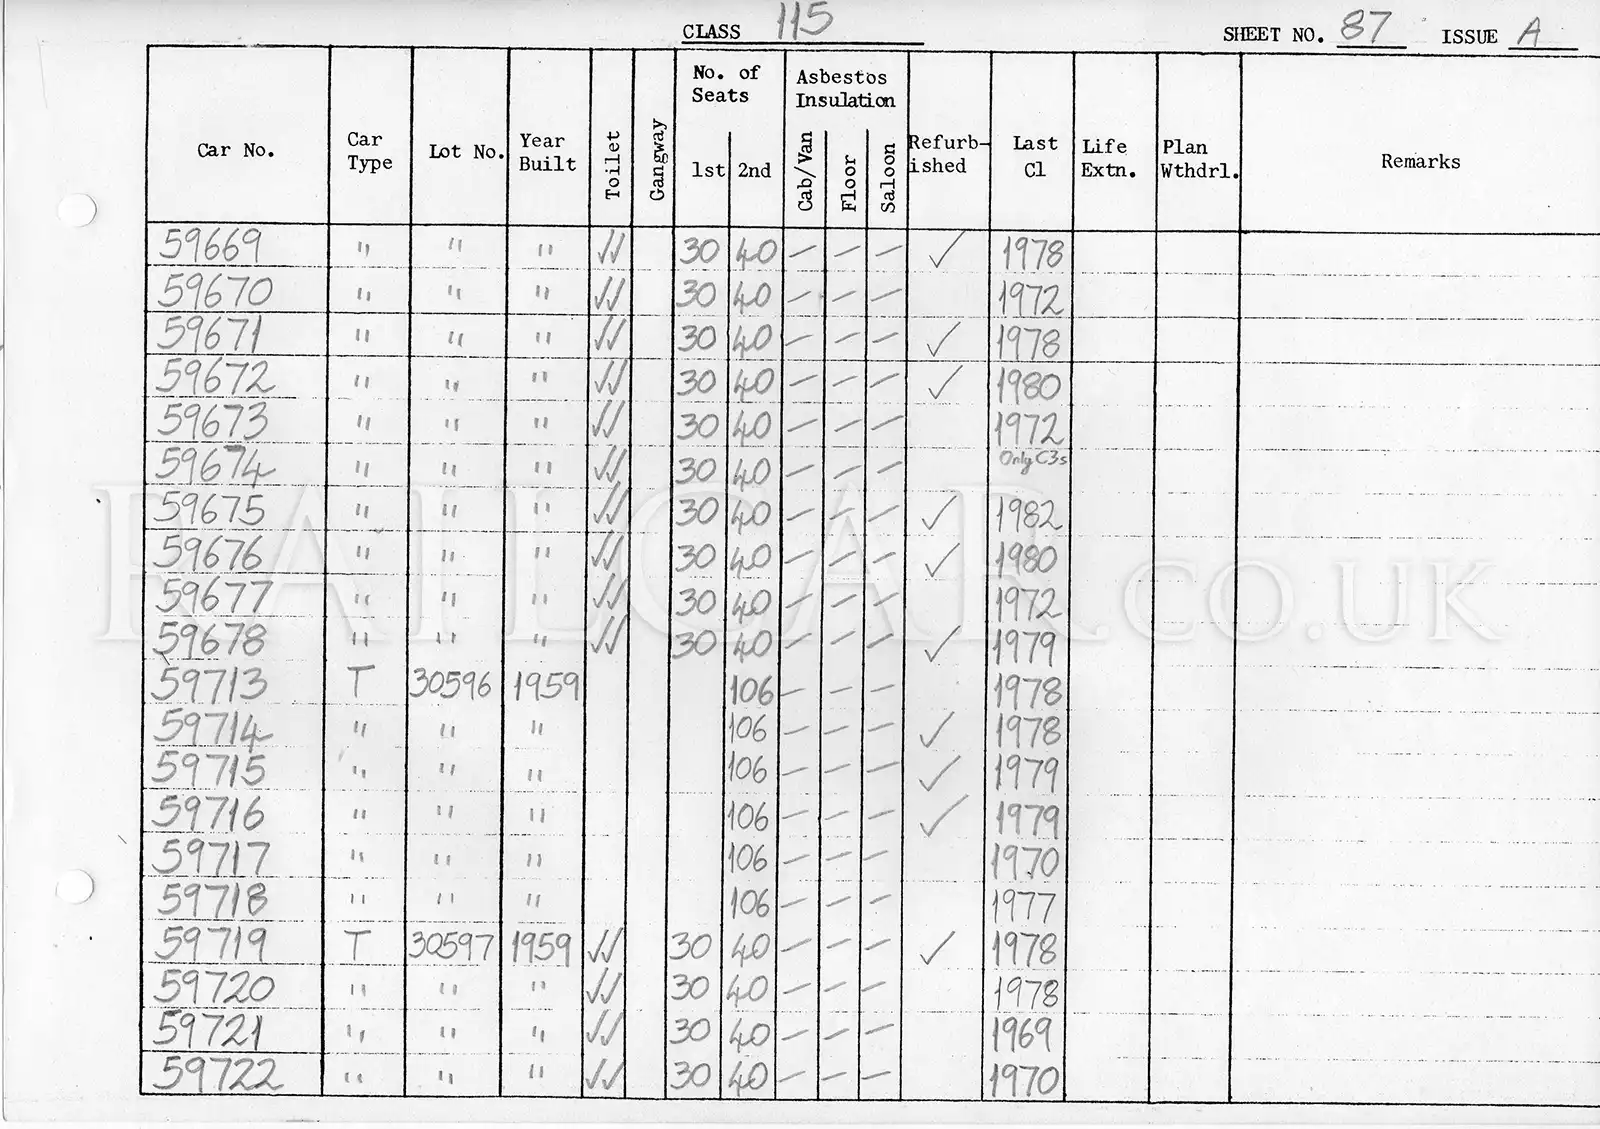 CLASS 115 SHEET NO. 87 ISSUE A
Car No. Car Type Lot No. Year Built Toilet Gangway No. of Seats 1st 2nd Asbestos Insulation Cab/Van Floor Saloon Refurb-ished Last Cl Life Extn. Plan Wthdrl. Remarks
59669 " " " ✓✓ 30 40 — — — ✓ 1978
59670 " " " ✓✓ 30 40 — — — 1972
59671 " " " ✓✓ 30 40 — — — ✓ 1978
59672 " " " ✓✓ 30 40 — — — ✓ 1980
59673 " " " ✓✓ 30 40 — — — 1972
59674 " " " ✓✓ 30 40 — — — Only C3s
59675 " " " ✓✓ 30 40 — — — ✓ 1982
59676 " " " ✓✓ 30 40 — — — ✓ 1980
59677 " " " ✓✓ 30 40 — — — 1972
59678 " " " ✓✓ 30 40 — — — ✓ 1979
59713 T 30596 1959 106 — — — 1978
59714 " " " 106 — — — ✓ 1978
59715 " " " 106 — — — ✓ 1979
59716 " " " 106 — — — ✓ 1979
59717 " " " 106 — — — 1970
59718 " " " 106 — — — 1977
59719 T 30597 1959 ✓✓ 30 40 — — — ✓ 1978
59720 " " " ✓✓ 30 40 — — — 1978
59721 " " " ✓✓ 30 40 — — — 1969
59722 " " " ✓✓ 30 40 — — — 1970
RAILCAR.CO.UK